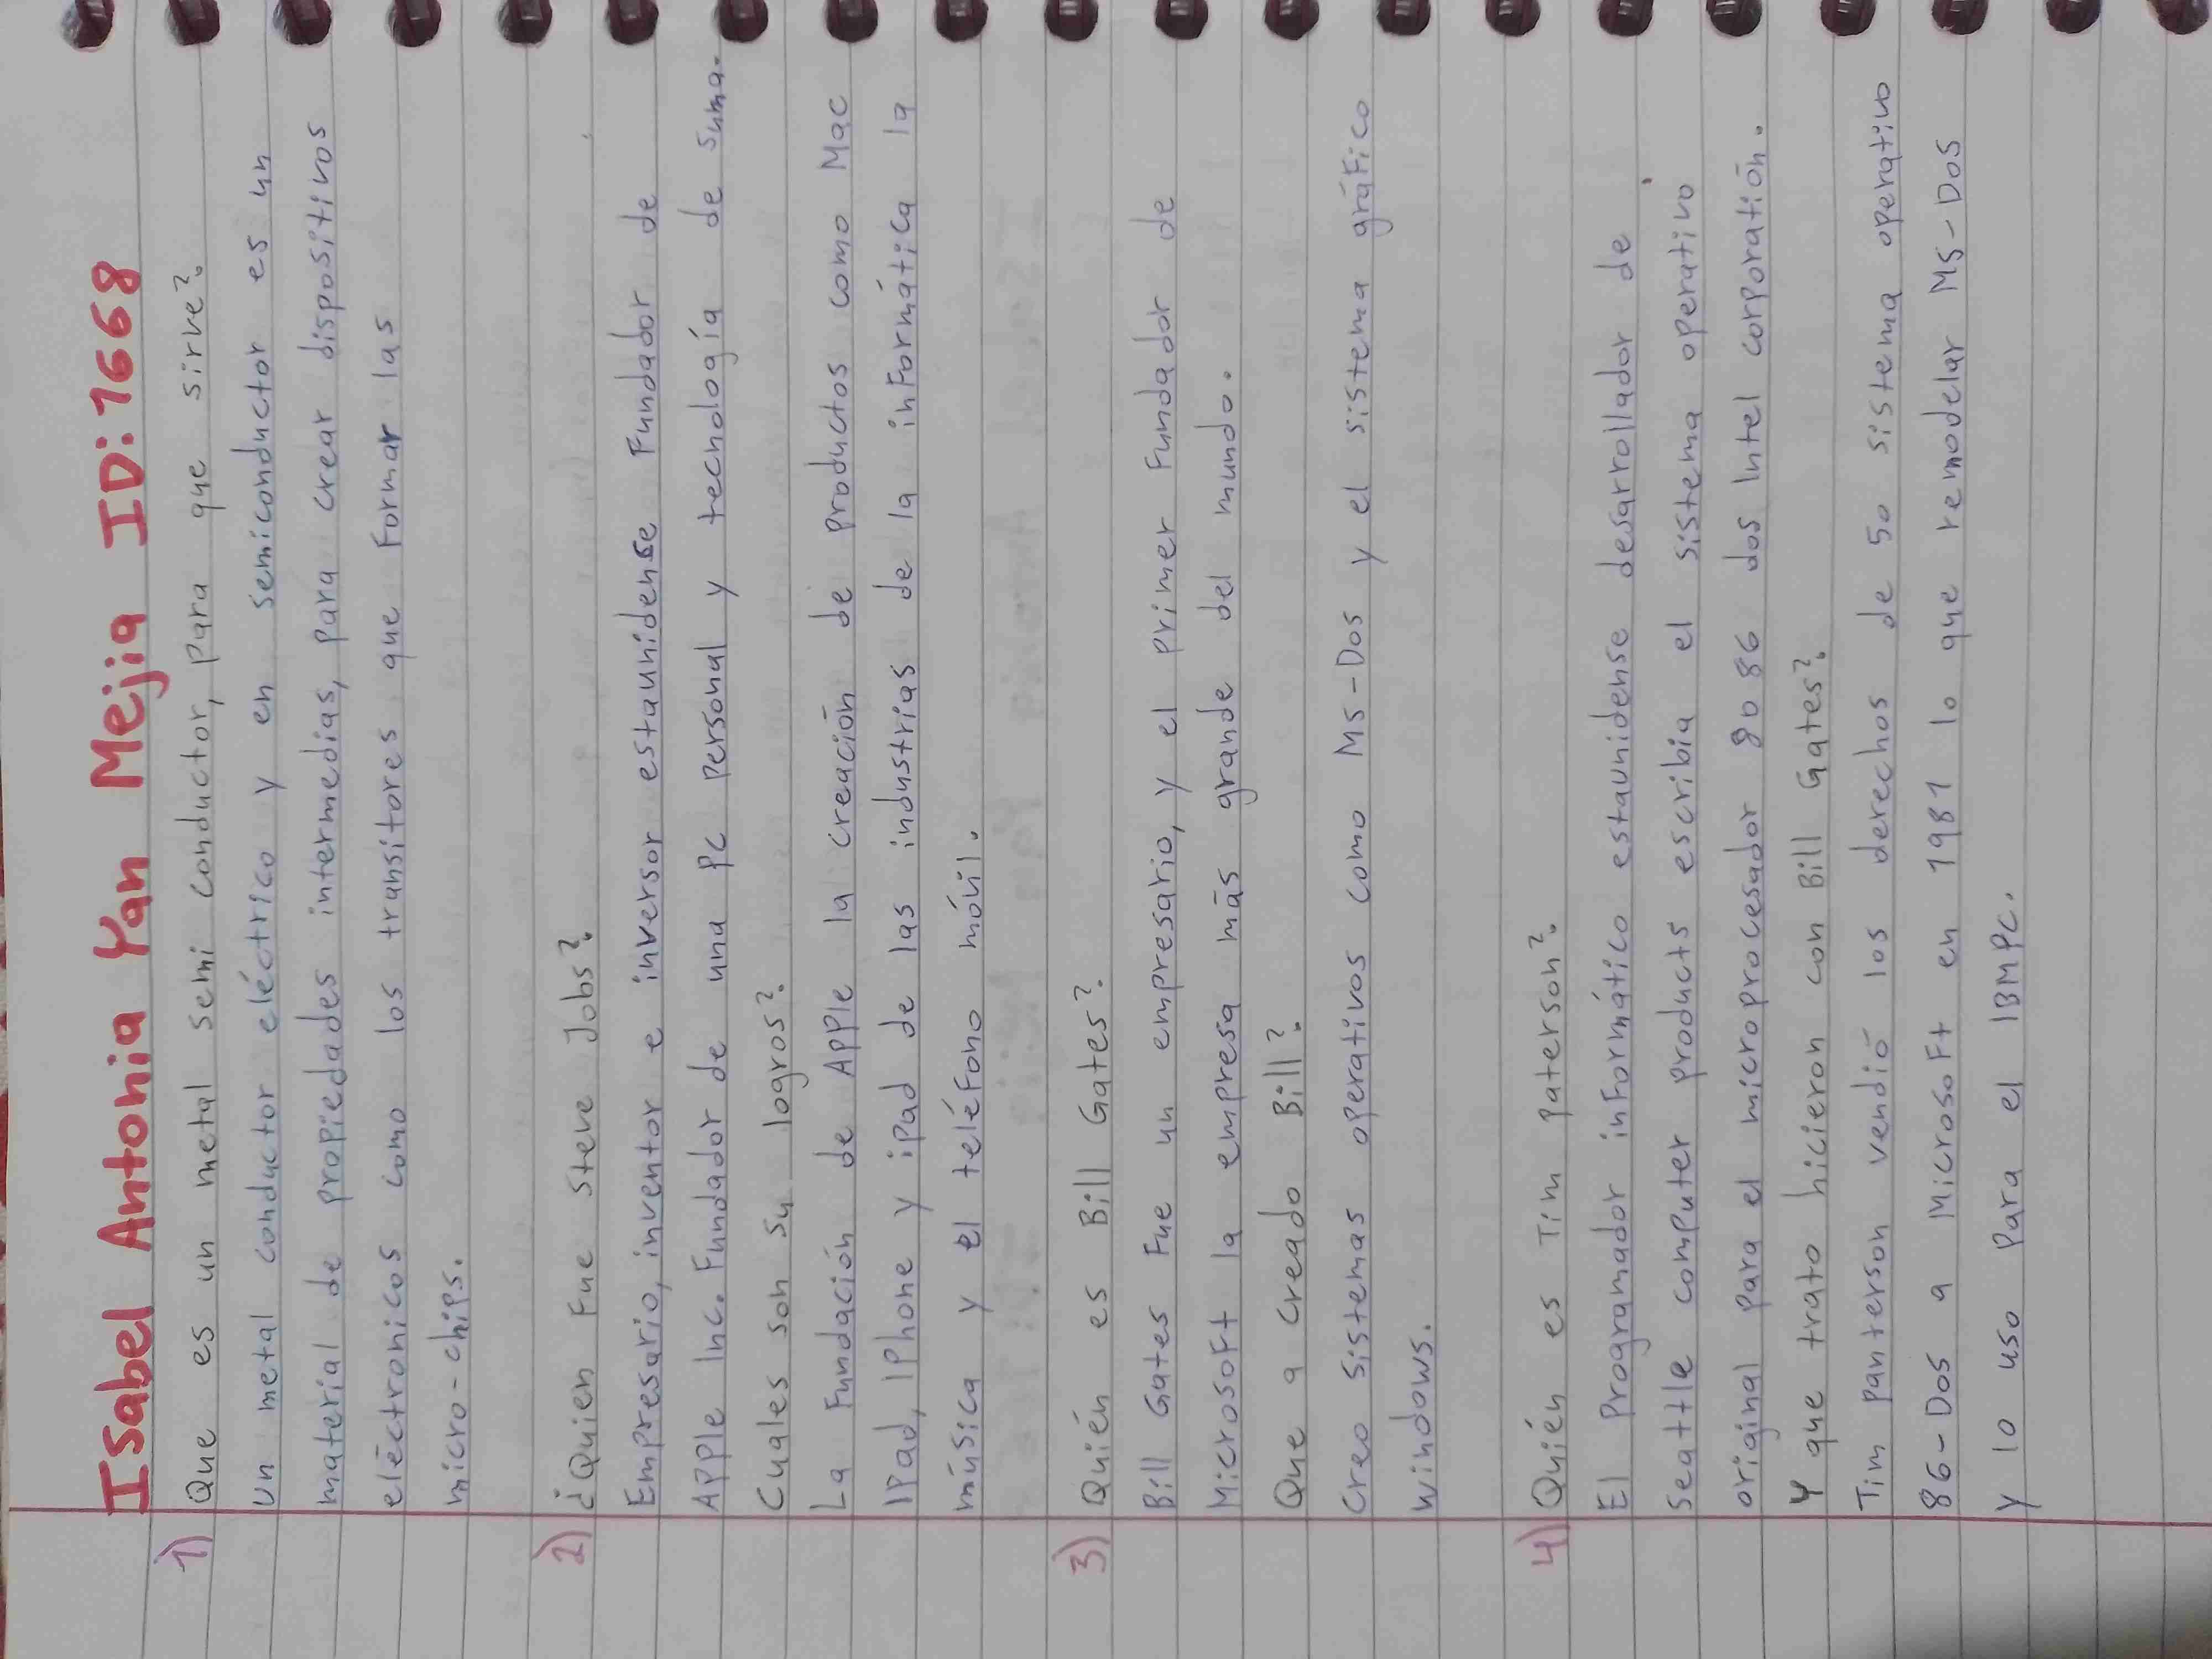 Isabel Antonia Yan Mejia ID:1668
1) Que es un metal semi conductor, para que sirve?
un metal conductor eléctrico y en semiconductor es un
material de propiedades intermedias, para crear dispositivos
eléctronicos como los transitores que Formar las
micro-chips.
2) ¿Quien Fue Steve Jobs?
Empresario, inventor e inversor estaunidense Fundador de
Apple Inc. Fundador de una PC Personal y tecnología de suma.
Cuales son su logros?
La Fundación de Apple la creación de productos como Mac
IPad, IPhone y ipad de las industrias de la inFormática la
música y el teléFono móvil.
3) Quién es Bill Gates?
Bill Gates Fue un empresario, y el primer Fundador de
MicrosoFt la empresa más grande del mundo.
Que a creado Bill?
Creo sistemas operativos como Ms-Dos y el sistema gráFico
windows.
4) Quién es Tim paterson?
El Programador inFormático estaunidense desarrollador de
seattle computer products escribia el sistema operativo
original para el microprocesador 8086 dos Intel corporatión.
Y que trato hicieron con Bill Gates?
Tim panterson vendió los derechos de so sistema operativo
86-Dos a MicrosoFt en 1981 lo que remodelar MS-Dos
y lo uso para el IBMPC.